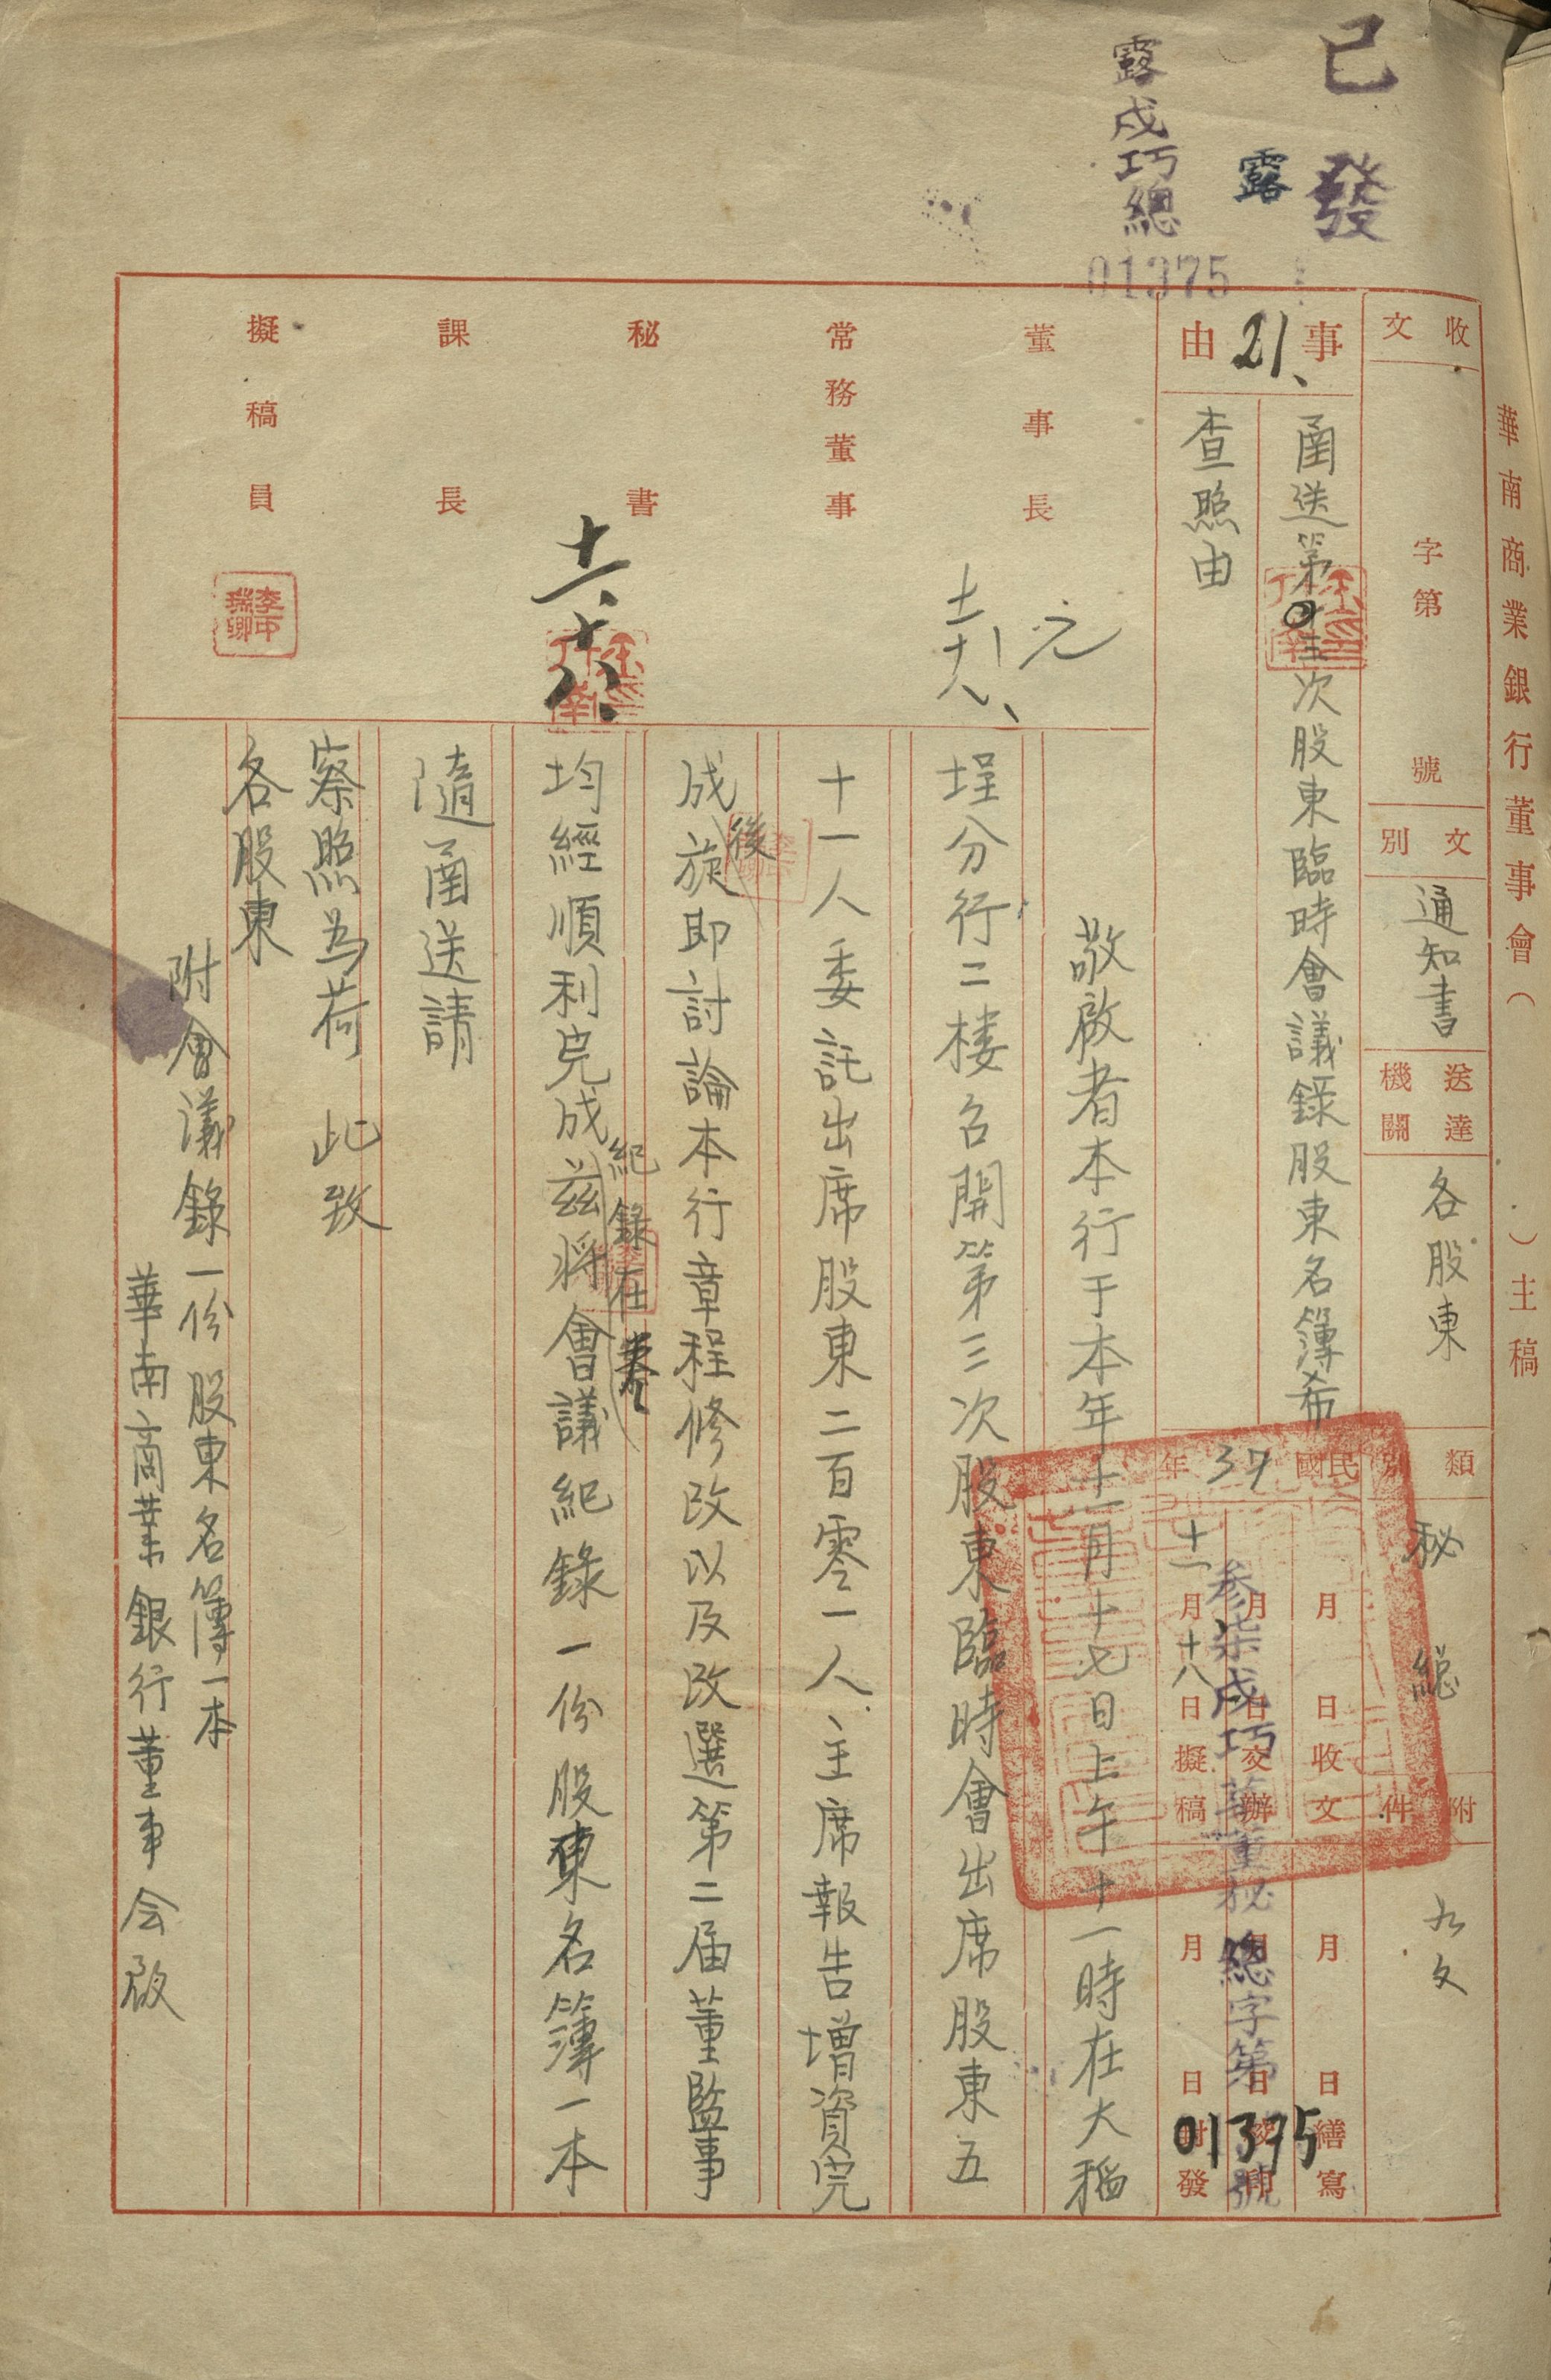 已發
露
露戍巧總
01375
華南商業銀行董事會（　）主稿
收文　字第　號
文別　通知書
送達機關　各股東
類別　秘總
附件　如文
事由
21、
函送第三次股東臨時會議錄股東名簿希
查照由
民國37年
月　日收文
月　日交辦
十一月十八日擬稿
月　日繕寫
月　日校印
月　日封發
參柒戍巧華董秘總字第01375號
董事長　元　十一、十八、
常務董事
秘書　十一、十八、
課長
擬稿員
敬啟者本行于本年十一月十七日上午十一時在大稻
埕分行二楼召開第三次股東臨時會出席股東五
十一人委託出席股東二百零一人主席報告增資完
成後旋即討論本行章程修改以及改選第二届董監事
均經順利完成紀錄在卷茲將會議紀錄一份股東名簿一本
隨函送請
察照為荷　此致
各股東
附會議錄一份股東名簿一本
華南商業銀行董事会啟